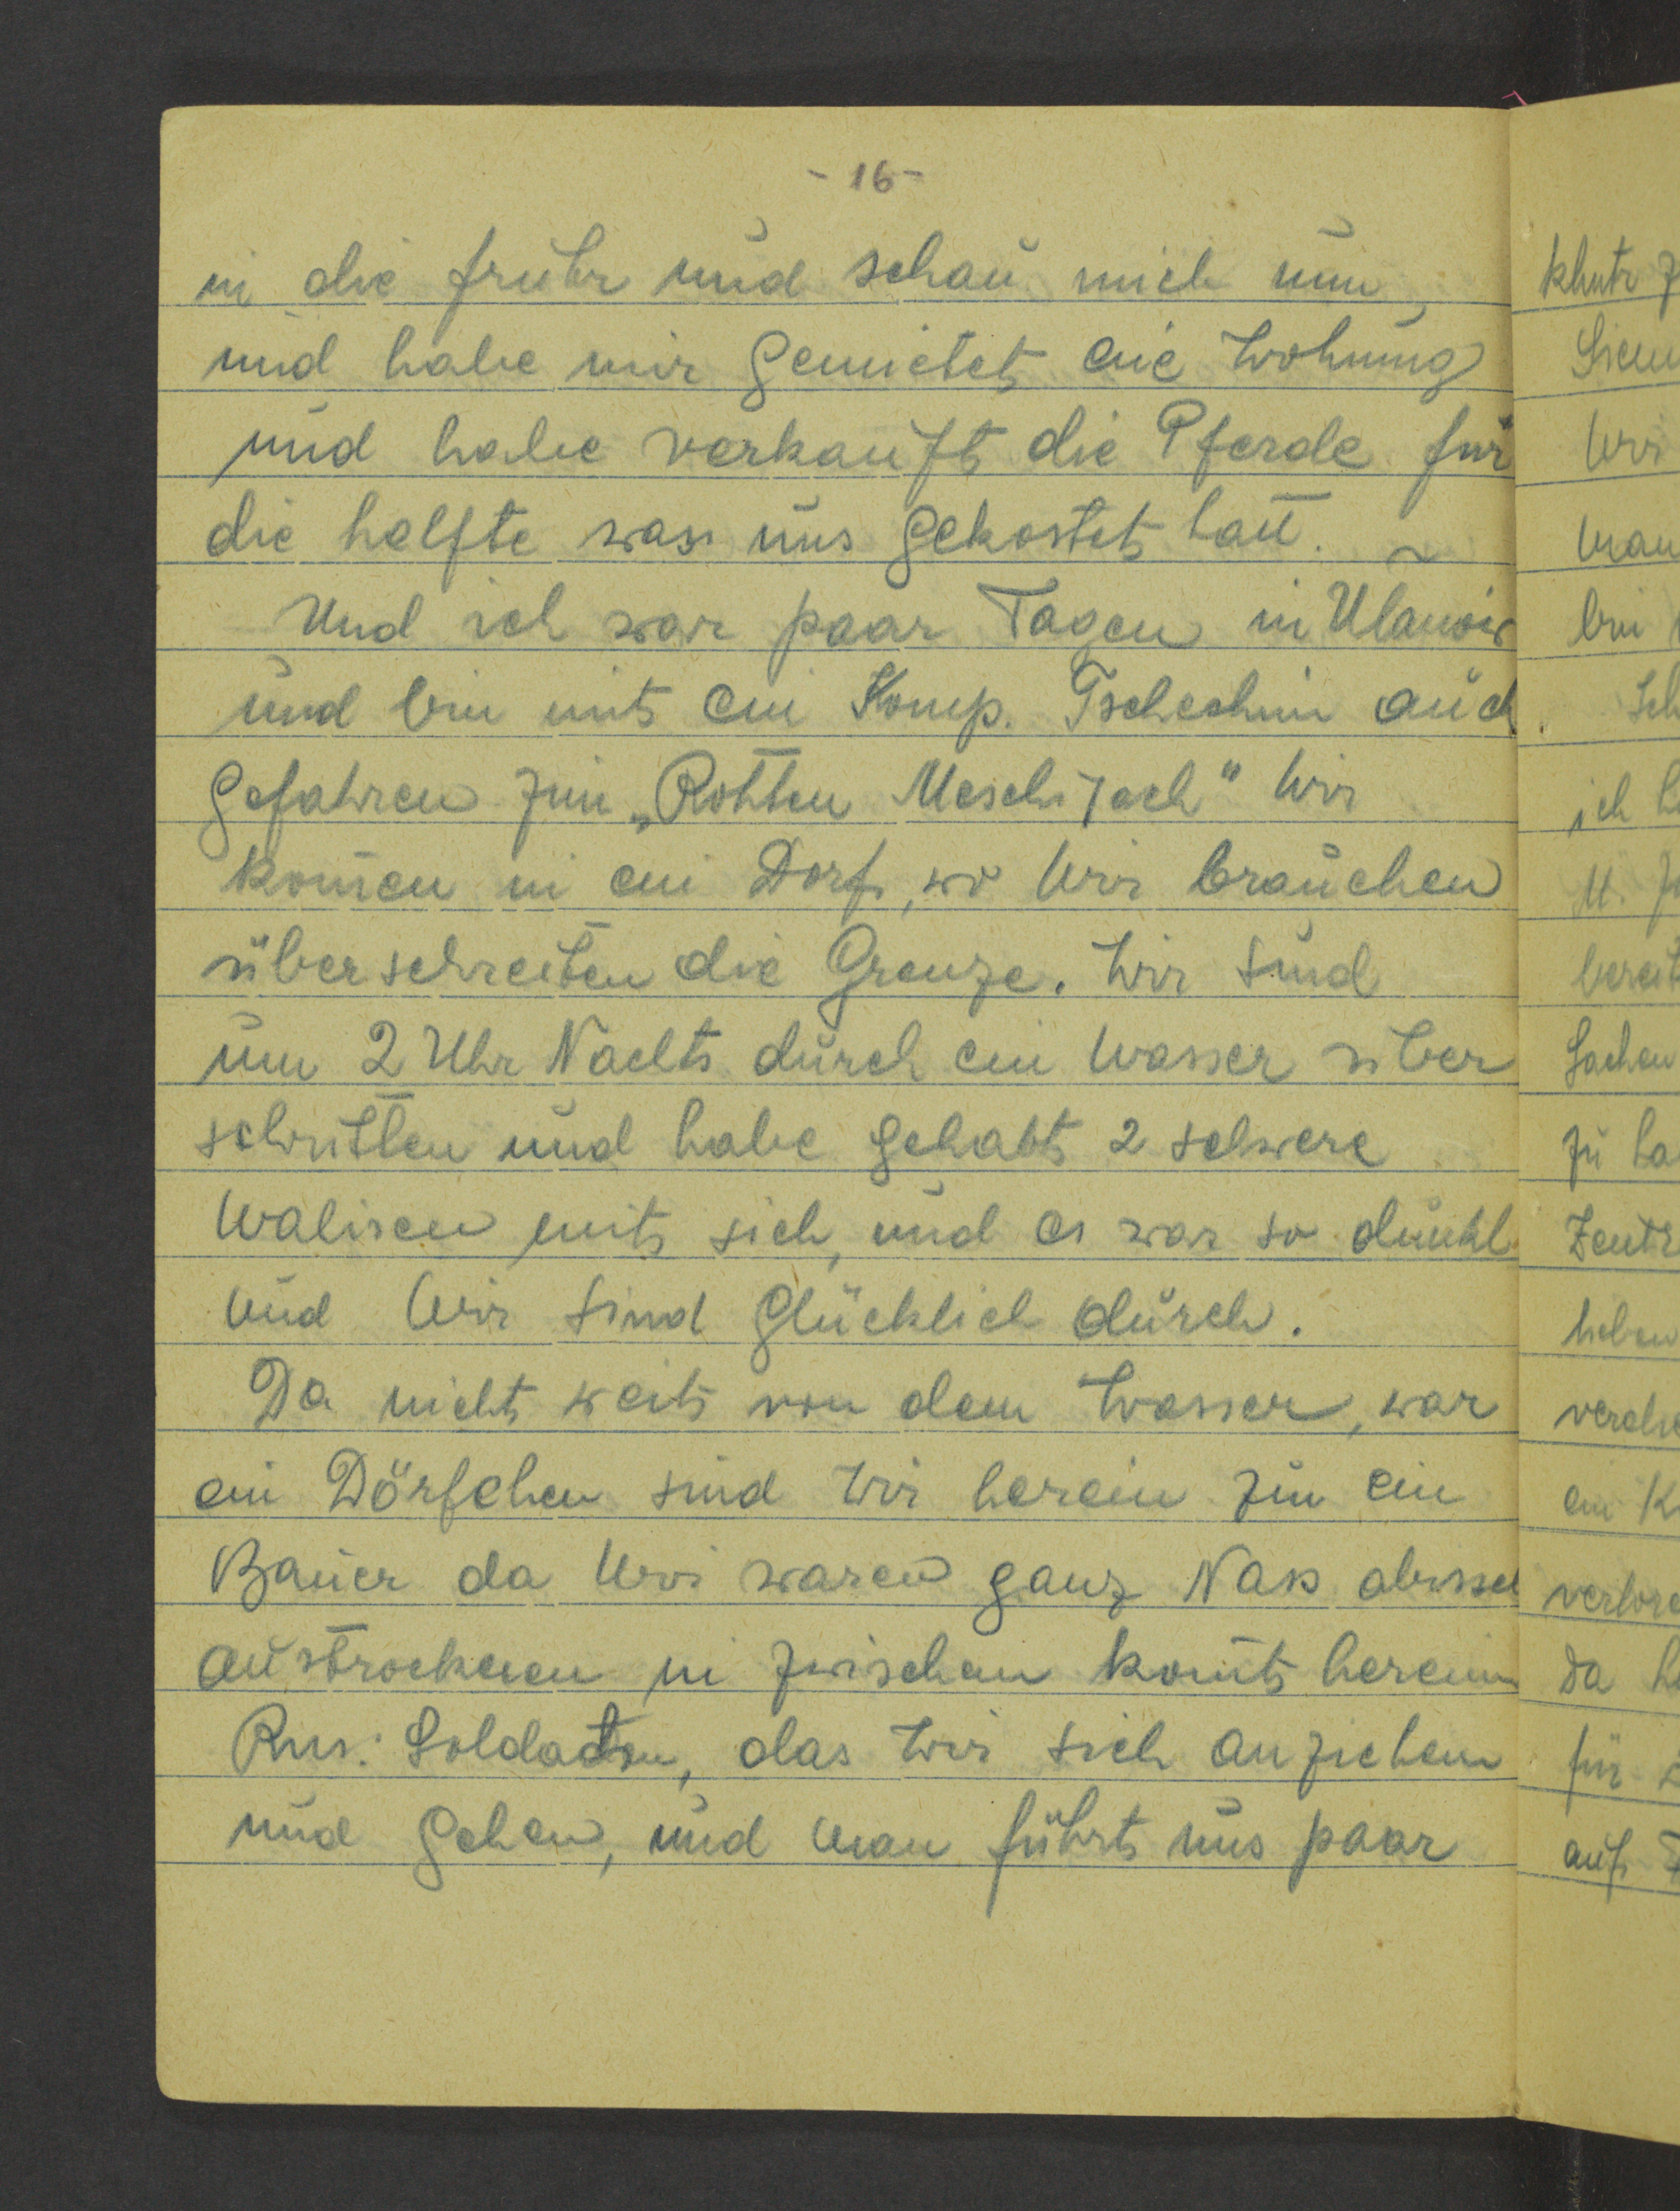 - 16 -
in die fruhr und schau mich um,
und habe mir gemietet eine Wohnung
und habe verkauft die Pferde für
die helfte was uns gekostet hatt.
Und ich war paar Tagen in Ulanow
und bin mit ein Komp. auch
gefahren zum „Rohtten Meschijach" Wir
komen in ein Dorf, wo Wir brauchen
überschreiten die Grenze. Wir sind
um 2 Uhr Nachts durch ein Wasser über
schritten und habe gehabt 2 schwere
Walisen mit sich, und es war so dunkl
und Wir sind Glücklich durch.
Da nicht weit von dem Wasser, war
ein Dörfchen sind Wir herein zum ein
Bauer da Wir waren ganz Nass abissel
austrockenen in zwischen komt herein
Rus: Soldaten, das Wir sich anziehen
und gehen, und man führt uns paar
Wir
bin
ich
M.
bereit
Sachen
zu
ein
da
für
auf